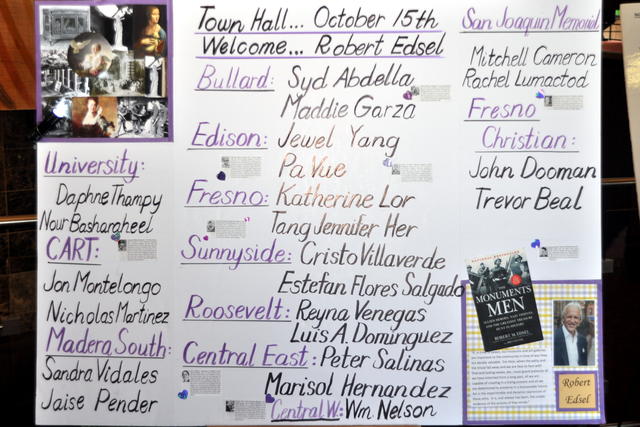 Town Hall... October 15th
Welcome... Robert Edsel
University:
Daphne Thampy
Nour Basharaheel
CART:
Jon Montelongo
Nicholas Martinez
Madera South:
Sandra Vidales
Jaise Pender
Bullard: Syd Abdella
Maddie Garza
Edison: Jewel Yang
Pa Vue
Fresno: Katherine Lor
Tang Jennifer Her
Sunnyside: Cristo Villaverde
Estefan Flores Salgado
Roosevelt: Reyna Venegas
Luis A. Dominguez
Central East: Peter Salinas
Marisol Hernandez
Central W: Wm Nelson
San Joaquin Memorial
Mitchell Cameron
Rachel Lumactod
Fresno
Christian:
John Dooman
Trevor Beal
THE
MONUMENTS
MEN
ROBERT M. EDSEL
Robert
Edsel